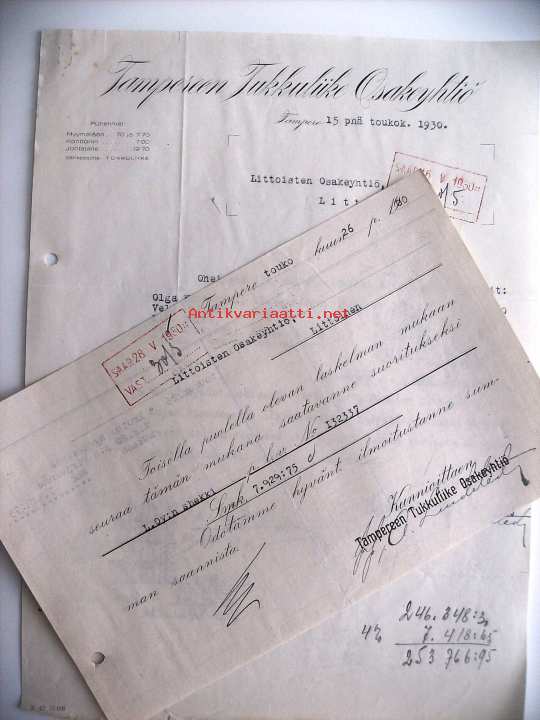 Tampereen Tukkuliike Osakeyhtiö
Tampere 15 pnä toukok. 1930.
Puhelimet:
Myymälään 70 ja 770
Konttoriin 700
Johtajalle 1970
TUKKULIIKE
Littoisten Osakeyhtiö,
Litt
SAAP. 16 V 1930
Olga
Antikvariaatti.net
Tampere touko kuun 26 p. 1930
SAAP. 28 V 1930
VAST.
Littoisten Osakeyhtiö,
Littoinen
Toisella puolella olevan laskelman mukaan
seuraa tämän mukana saatavanne suoritukseksi
L.Ovin shekki p. l.v. No 132337
Smk. 7.929:75
Odotamme hyvänt. ilmoitustanne sum-
man saannista.
Kunnioittaen
Tampereen Tukkuliike Osakeyhtiö
246. 348:30
42 7. 418:65
253 766:95